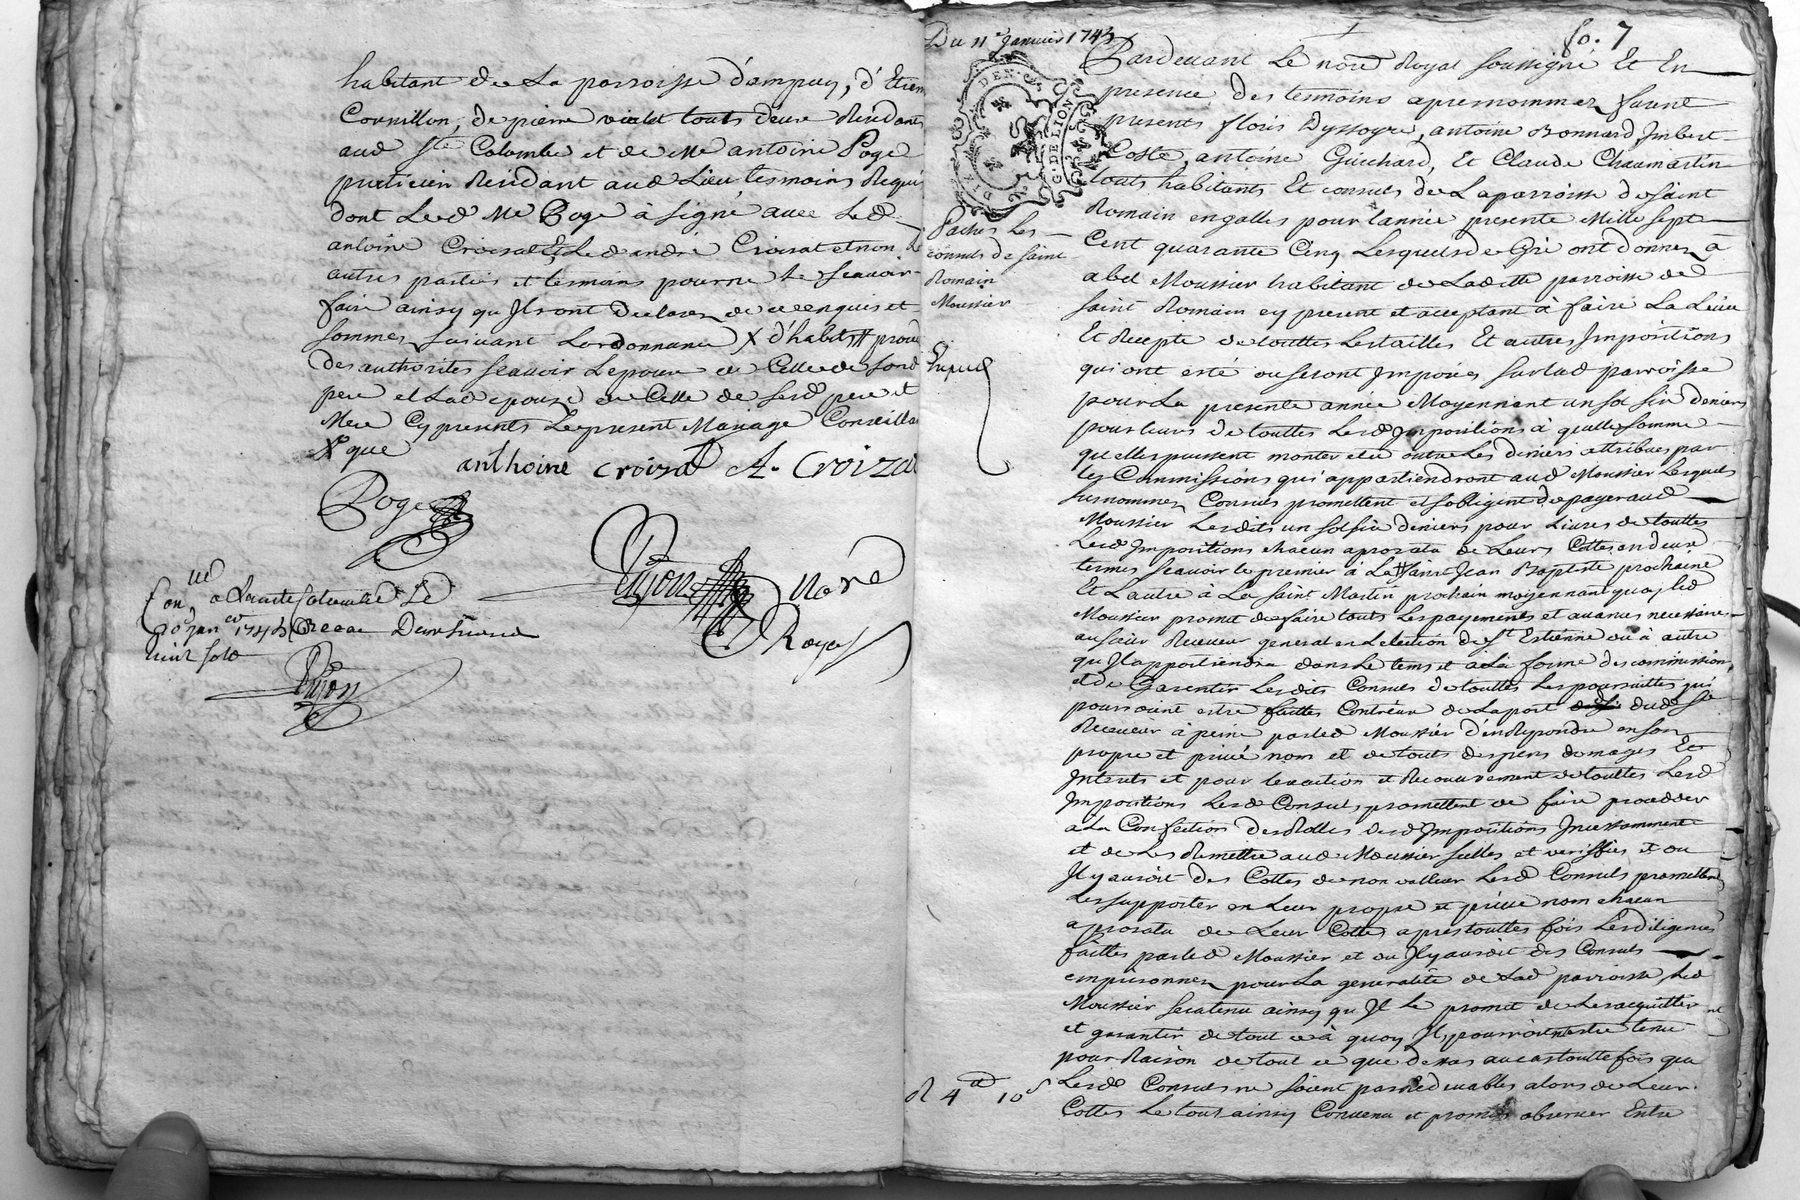 habitant de La parroisse d'ampuy, d'Etien
Cornillon, de pierre violet touts deux Residants
aud Ste Colombe et de Me antoine Poge
praticien Residant aud Lieu tesmoins Requis
dont Led Me Poge à signé avec Led
antoine Croisat Et Led andré Croisat et non Les
autres parties et tesmoins pour ne le scavoir
faire ainsy qu Ils ont Declarer de ce enquis et
sommer suivant Lordonnance X d'habits # proced
des authorités scavoir Lepoux de Celle de sond
pere et Lad epouse de Celle de sesd pere et
Mere Cy presents Le present Mariage Conseillan
X que
anthoine croizat A. Croizat
Poge
Dujon Nore
Royal
Conlle a Sainte Colombe Le
20e janer 1745 Receu Douze
huit sols
Dujon
Du 11e Janvier 1745
fo. 7
DIX DEN. CA
G. DE LION
Paches Les
consuls de saint
Romain
Moussier
Expied
Pardevant Le nore Royal soussigné Et En
presence des temoins apresnommez furent
presents floris Dyssoyre, antoine Bonnard Imbert
Coste, antoine Guichard, Et Claude Chaumartin
touts habitants Et consuls de La parroisse de saint
Romain en galles pour l'année presente Mille sept
Cent quarante Cinq Lesquels de Gré ont donnez à
abel Moussier habitant de Laditte parroisse de
saint Romain cy present et acceptant à faire La Levée
Et Recepte de touttes Les tailles Et autres Impositions
qui ont esté ou seront Imposés sur lad parroisse
pour La presente année Moyennant un sol six deniers
pour livres de touttes Lesd Impositions à quelle somme
qu elles puissent monter et en outre Les deniers attribues par
les Commissions qui appartiendront aud Moussier Lesquels
susnommez Consuls promettent et sobligent de payer aud
Moussier Lesdits un sol six deniers pour Livres de touttes
Lesd Impositions chacun aprorata de Leurs Cottes en deux
termes scavoir le premier à La saint Jean Baptiste prochaine
Et L'autre à La saint Martin prochain moyennant quoy led
Moussier promet de faire touts Les payements et avances necessaires
au sieur Receveur general en Lelection de St Estienne ou à autre
qu Il appartiendra dans Le tems et à La forme des commissions
et de Garentir Lesdits Consuls de touttes Les poursuittes qui
pourroient estre faittes Contreux de La part dud sr
Receveur à peine par led Moussier d'en Repondre en son
propre et privé nom et de touts despens domages Et
Interets et pour lexaction et Recouvrement de touttes Lesd
Impositions Lesd Consuls promettent de faire proceder
à La Confection des Rolles desd Impositions Incessamment
et de Les Remettre aud Moussier seelles et veriffiés et ou
Il y auroit des Cottes de non valleur Lesd Consuls promettent
Les supporter en Leur propre et privé nom chacun
aprorata de Leur Cottes apres touttes fois Les diligences
faittes par led Moussier et ou Il y auroit des Consuls
emprisonnez pour La generalité de Lad parroisse, Led
Moussier sera tenu ainsy qu Il Le promet de Les acquitter
et garantir de tout ce à quoy Ils pourroient estre tenu
pour Raison de tout ce que dessus au cas touttefois que
Lesd Consuls ne soient pas Redevables alors de Leur
Cottes Le tout ainsy Convenu et promis observer Entre
R 4 10s